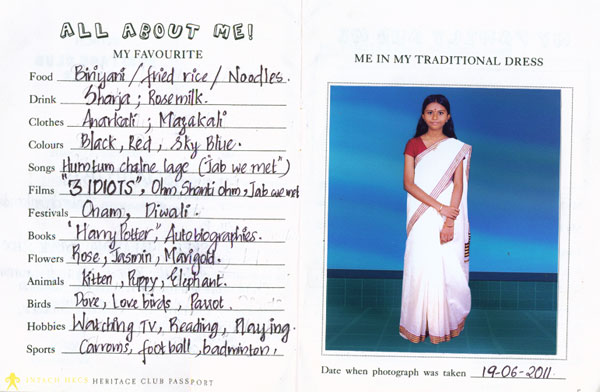 ALL ABOUT ME!
MY FAVOURITE
Food Biriyani / fried rice / Noodles.
Drink Sharja ; Rosemilk.
Clothes Anarkali ; Mazakali
Colours Black, Red, Sky Blue.
Songs Humtum chalne lage ("Jab we met")
Films "3 IDIOTS", Ohm Shanti ohm, Jab we met
Festivals Onam, Diwali.
Books "Harry Potter", Autobiographies.
Flowers Rose, Jasmin, Marigold.
Animals Kitten, Puppy, Elephant.
Birds Dove, Love birds, Parrot.
Hobbies Watching TV, Reading, Playing.
Sports Carroms, football, badminton,
INTACH HECS HERITAGE CLUB PASSPORT
ME IN MY TRADITIONAL DRESS
Date when photograph was taken 19-06-2011